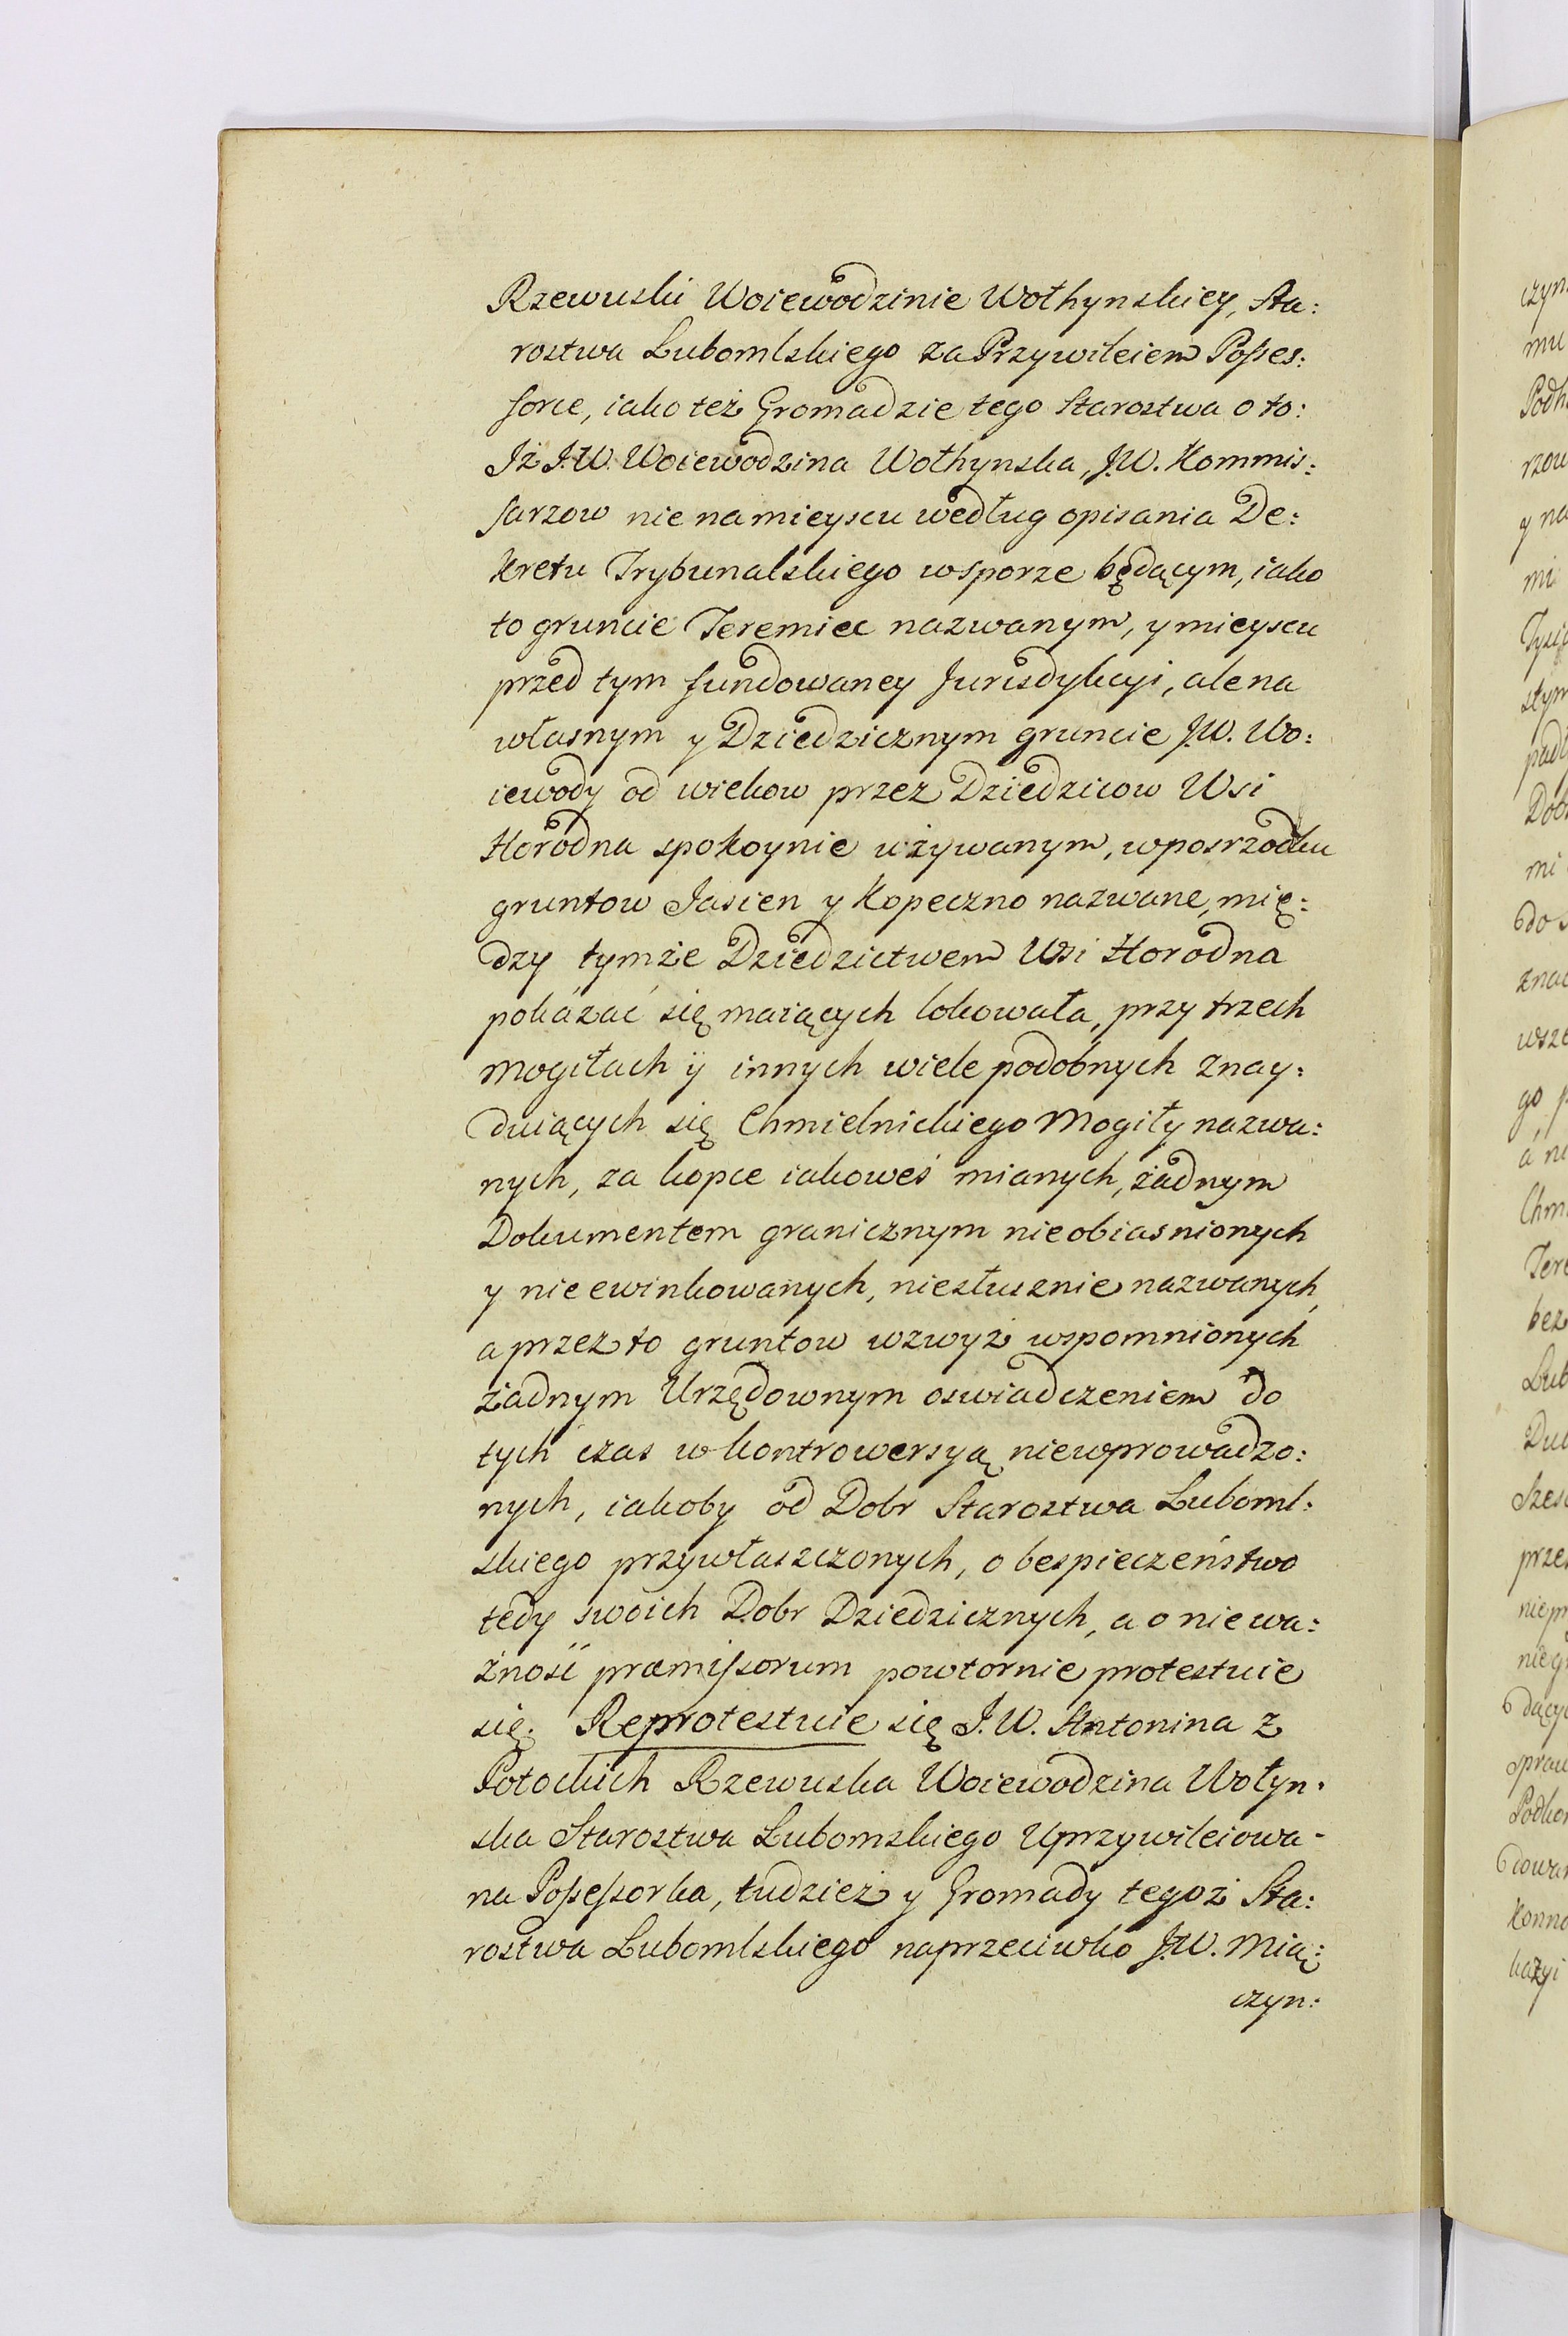 Rzewuski Woiewodzinie Wołhynskiey, Sta:
rostwa Lubomlskiego za Przywileiem Posses:
sorce, iako też Gromadzie tego Starostwa o to:
Iż J.W. Woiewodzina Wołhynska, J.W. Kommis:
sarzow nie na mieyscu według opisania De:
kretu Trybunalskiego w sporze będącym, iako
to gruncie Jeremiec nazwanym, y mieyscu
przed tym fundowaney Jurisdykcyi, ale na
własnym y Dziedzicznym gruncie J.W. Wo:
iewody od wiekow przez Dziedzicow Wsi
Horodna spokoynie używanym, w posrzodku
gruntow Jasien y Kopeczno nazwane, mię:
dzy tymże Dziedzictwem Wsi Horodna
pokázać się maiących lokowała, przy trzech
Mogiłach ÿ innych wiele podobnych znay:
duiących się Chmielnickiego Mogiły nazwa:
nych, za kopce iakoweś mianych, żadnym
Dokumentem granicznym nie obiasnionych
y nie ewinkowanych, niesłusznie nazwanych,
a przez to gruntow wzwyż wspomnionych
żadnym Urzędownym oswiadczeniem do
tych czas w kontrowersyą niewprowadzo:
nych, iakoby od Dobr Starostwa Luboml:
skiego przywłaszczonych, o bespieczeństwo
tedy swoich Dobr Dziedzicznych, a o niewa:
żność præmissorum powtornie protestuie
się. Reprotestuie się J.W. Antonina z
Potockich Rzewuska Woiewodzina Wołyn:
ska Starostwa Lubomskiego Uprzywileiowa-
na Possessorka, tudzież y Gromady tegoż Sta:
rostwa Lubomlskiego naprzeciwko J.W. Mią:
czyn: